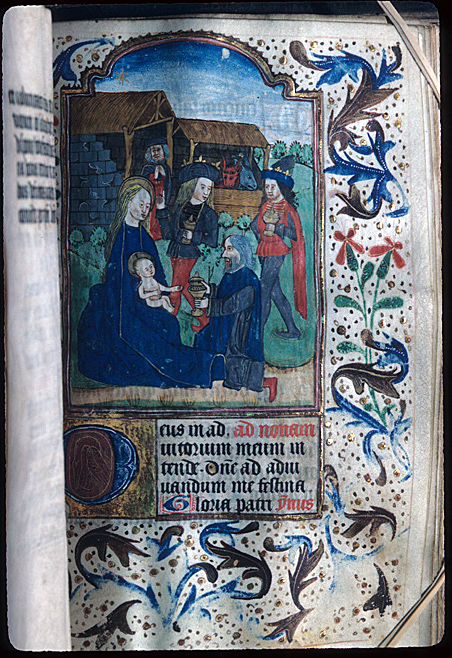 Deus in ad. ad nonam
iutorium meum in
tende. Dne ad adiu
uandum me festina
Gloria patri ymus